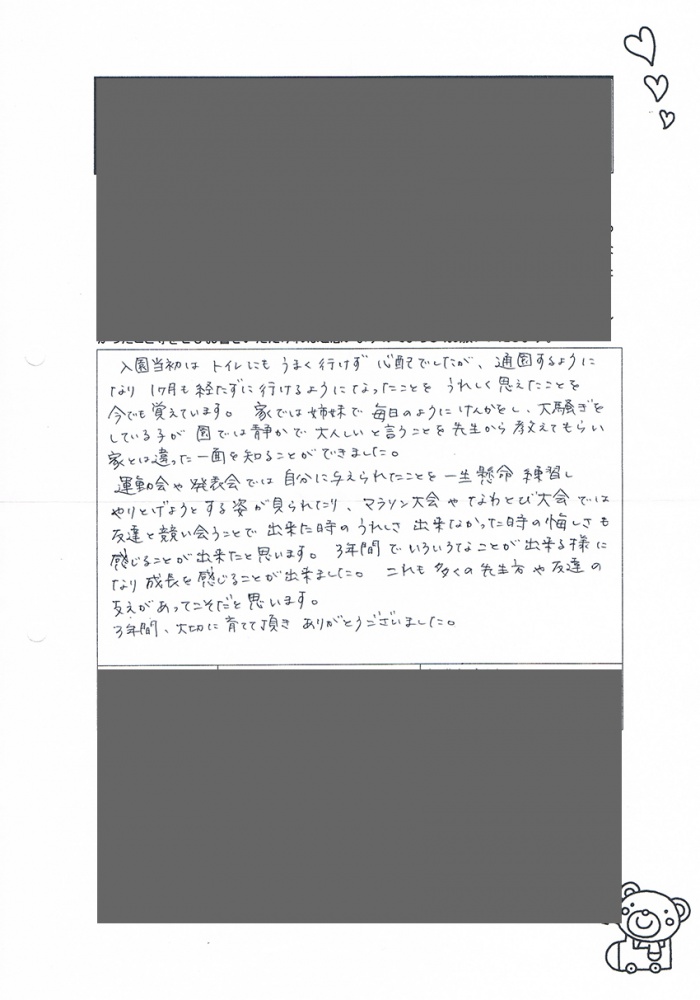 入園当初は トイレにも うまく行けず 心配でしたが、通園するように
なり 1ヶ月も経たずに行けるようになったことを うれしく思えたことを
今でも覚えています。 家では姉妹で 毎日のようにけんかをし、大騒ぎを
している子が 園では静かで 大人しいと言うことを先生から教えてもらい
家とは違った一面を知ることができました。
運動会や発表会では 自分に与えられたことを 一生懸命 練習し
やりとげようとする姿が見られたり、マラソン大会や なわとび大会では
友達と競い会うことで 出来た時のうれしさ 出来なかった時の悔しさも
感じることが出来たと思います。 3年間でいろいろなことが出来る様に
なり 成長を感じることが出来ました。 これも多くの先生方や友達の
支えがあってこそだと思います。
3年間、大切に育てて頂き ありがとうございました。